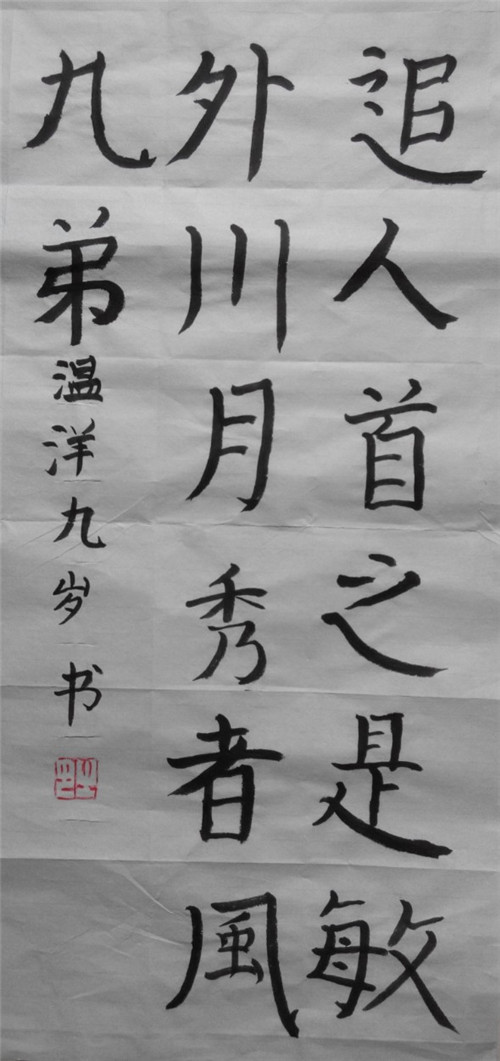 追人首之是敏
外川月秀者風
九弟
温洋九岁书